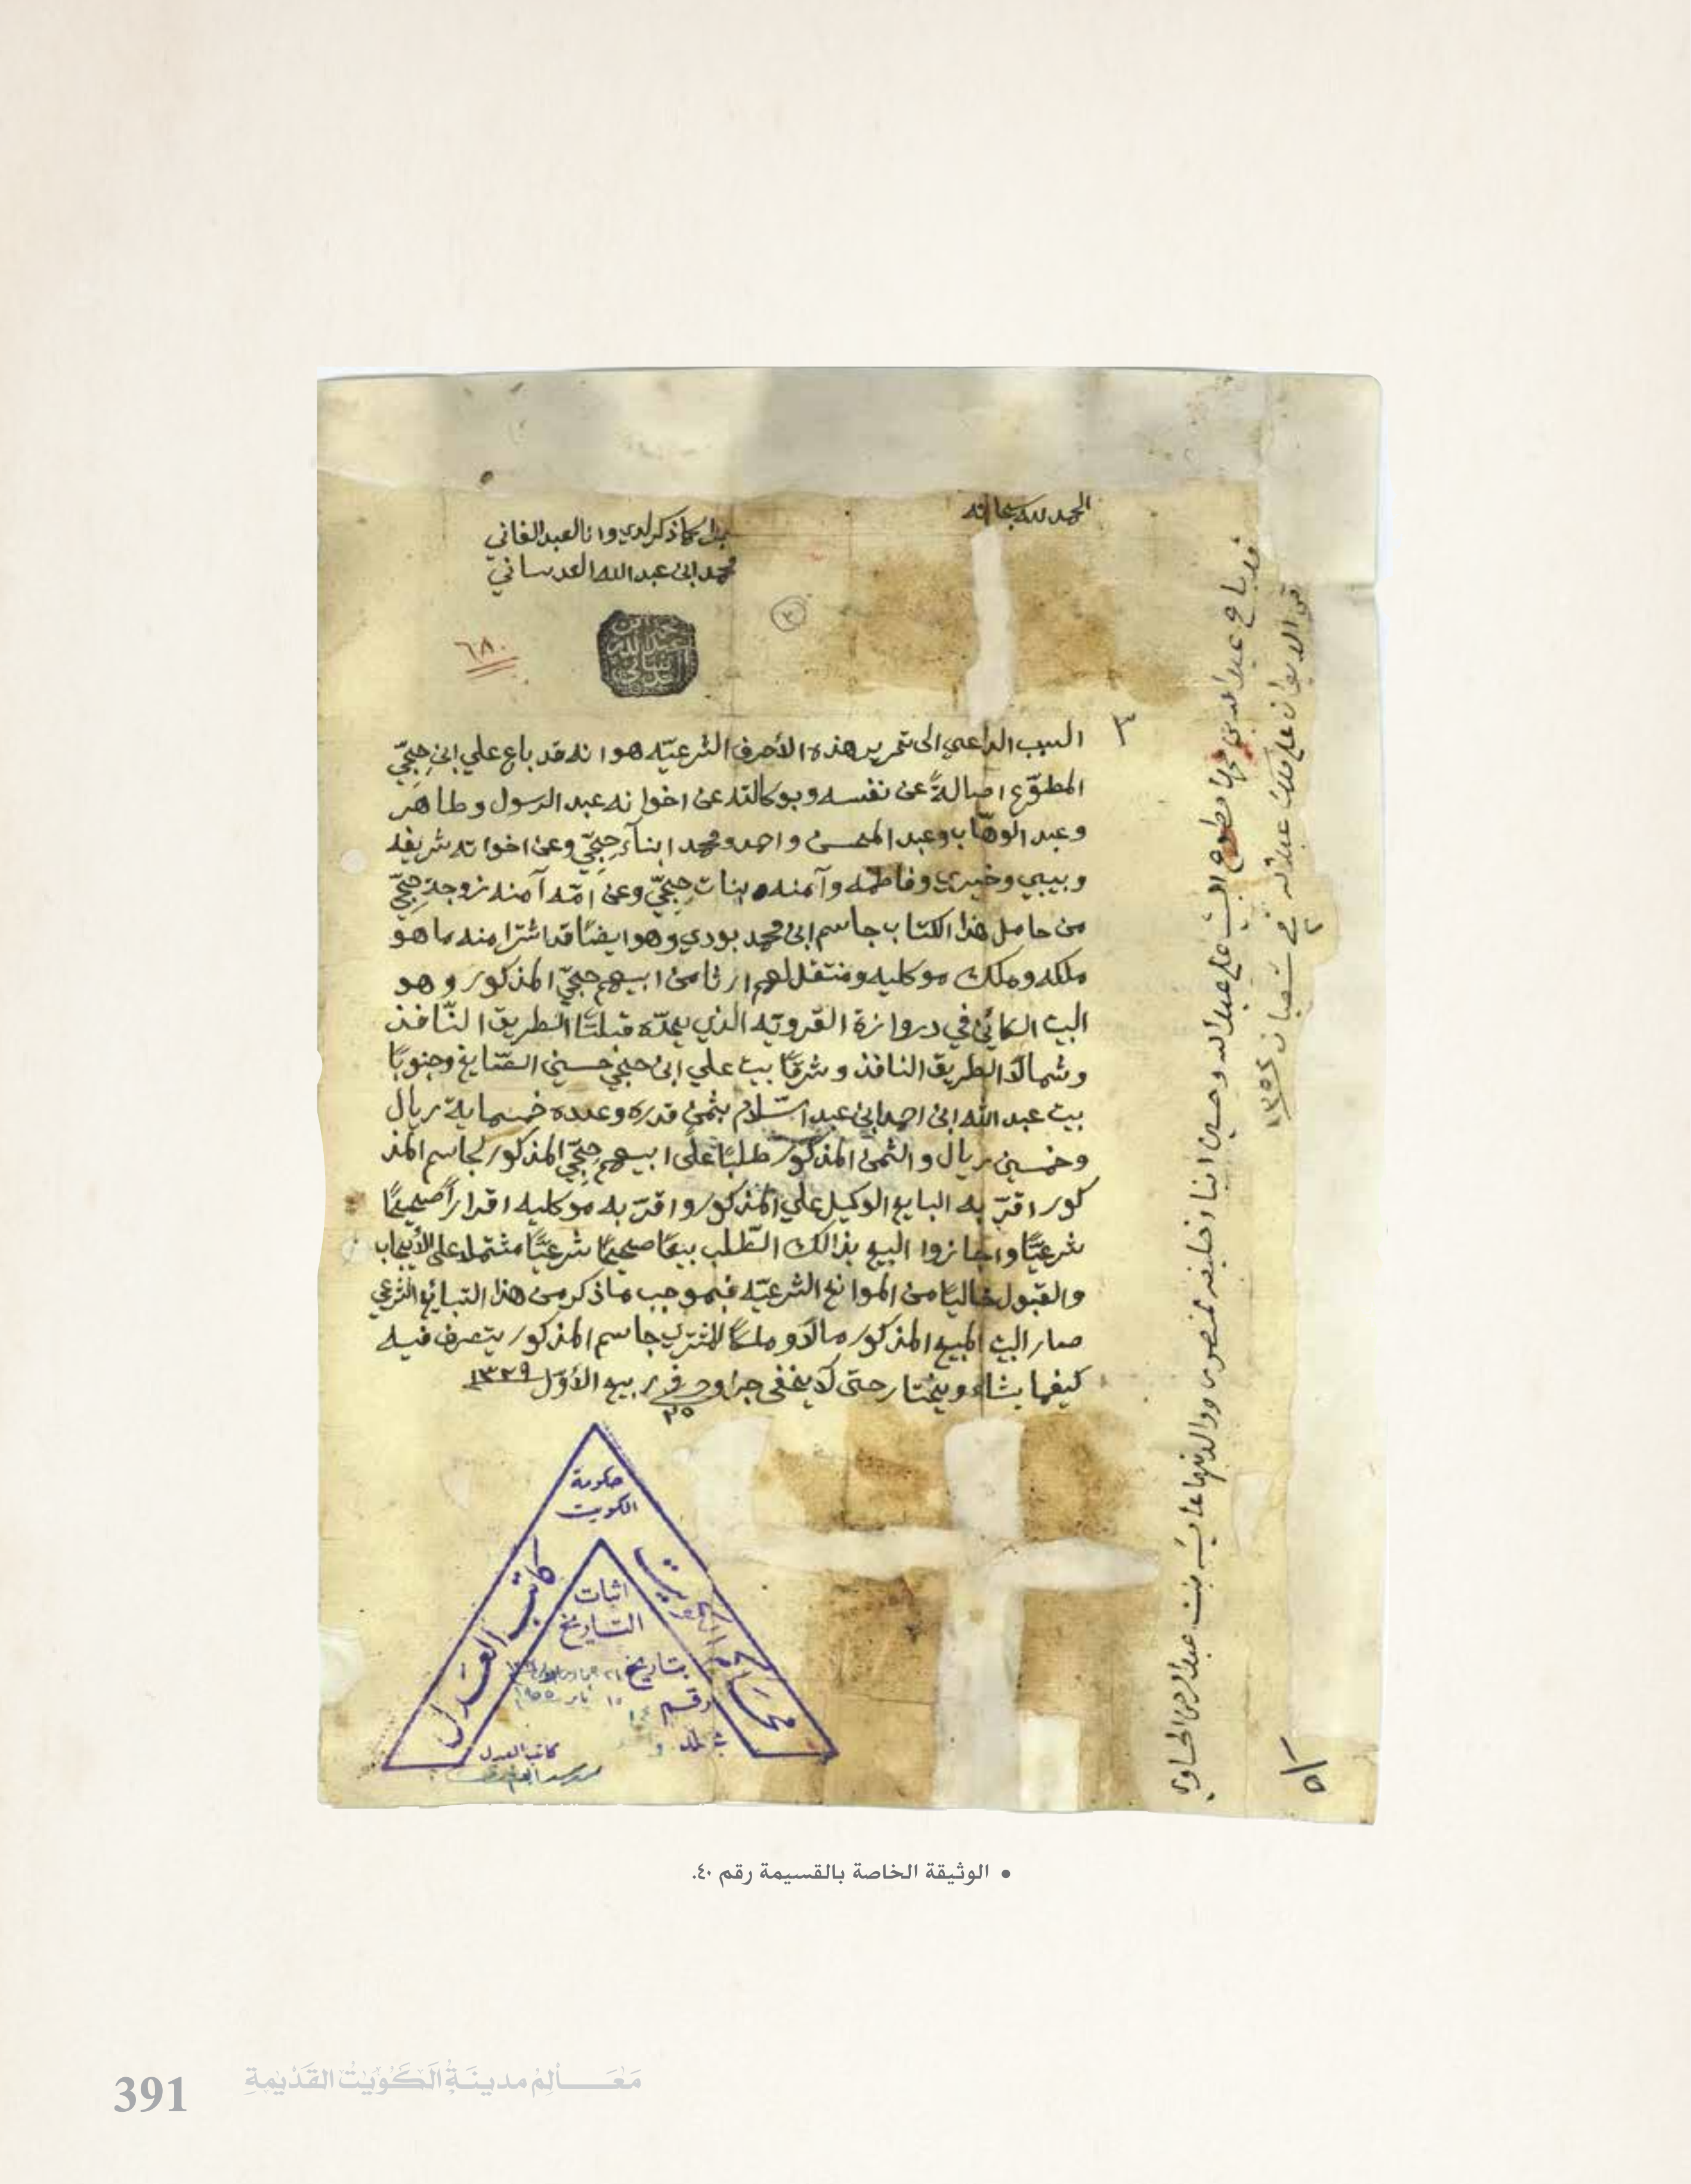 الحمد لله سبحانه
جرا كما ذكر لدي وانا العبد الفاني
محمد ابن عبد الله العدساني
محمد ابن عبد الله العدساني
٦٨٠
٣
٣
السبب الداعي الى تحرير هذه الأحرف الشرعيّه هو انه قد باع علي ابن حِجّي
المطوّع اصالةً عن نفسه وبوكالته عن اخوانه عبد الرسول وطاهر
وعبد الوهّاب وعبد المحسن واحمد ومحمد ابنآء حِجّي وعن اخواته شريفه
وبيبي وخيري وفاطمه وآمنه بنات حِجّي وعن امّه آمنه زوجة حِجّي
من حامل هذا الكتاب جاسم ابن محمد بودي وهو ايضًا قد اشترا منه ما هو
ملكه وملك موكليه ومنتقل لهم ارثا من ابيهم حِجّي المذكور وهو
البيت الكائن في دروازة القرويّه الذي يحدّه قبلتًا الطريق النّافذ
وشمالًا الطريق النافذ وشرقًا بيت علي ابن حجي حسين الصّايغ وجنوبًا
بيت عبد الله ابن احمد ابن عبد السّلام بثمن قدره وعدده خمسماية ريال
وخمسين ريال والثمن المذكور طلبًا على ابيهم حِجّي المذكور لجاسم المذ
كور اقرّ به البايع الوكيل علي المذكور واقرّ به موكليه اقرارًا صحيحًا
شرعيًّا واجازوا البيع بذالك الطّلب بيعًا صحيحًا شرعيًّا مشتملا على الأيجاب
والقبول خاليًا من الموانع الشرعيّه فبموجب ماذكر من هذا التبائع الشرعي
صار البيت المبيع المذكور مالًا وملكًا للمشتري جاسم المذكور يتصرف فيه
كيفما يشاء ويختار حتى لا يخفى جرا وحرر في ٢٥ ربيع الأوّل ١٣٢٩
قد باع عبد الله بن محمد مطوع البيت على عبد الله وحسين ابنا خليفه المنصوري ووالدتهما عايشه بنت عبد الرحمن الحساوي
في شعبان ١٣٥٤
٥١
حكومة
الكويت
كاتب العدل
محاكم الكويت
اثبات
التاريخ
بتاريخ
رقم
جلد
كاتب العدل
• الوثيقة الخاصة بالقسيمة رقم ٤٠.
391 مَعَالِمْ مدينَةُ الْكُوَيْتْ القَدْيْمةِ